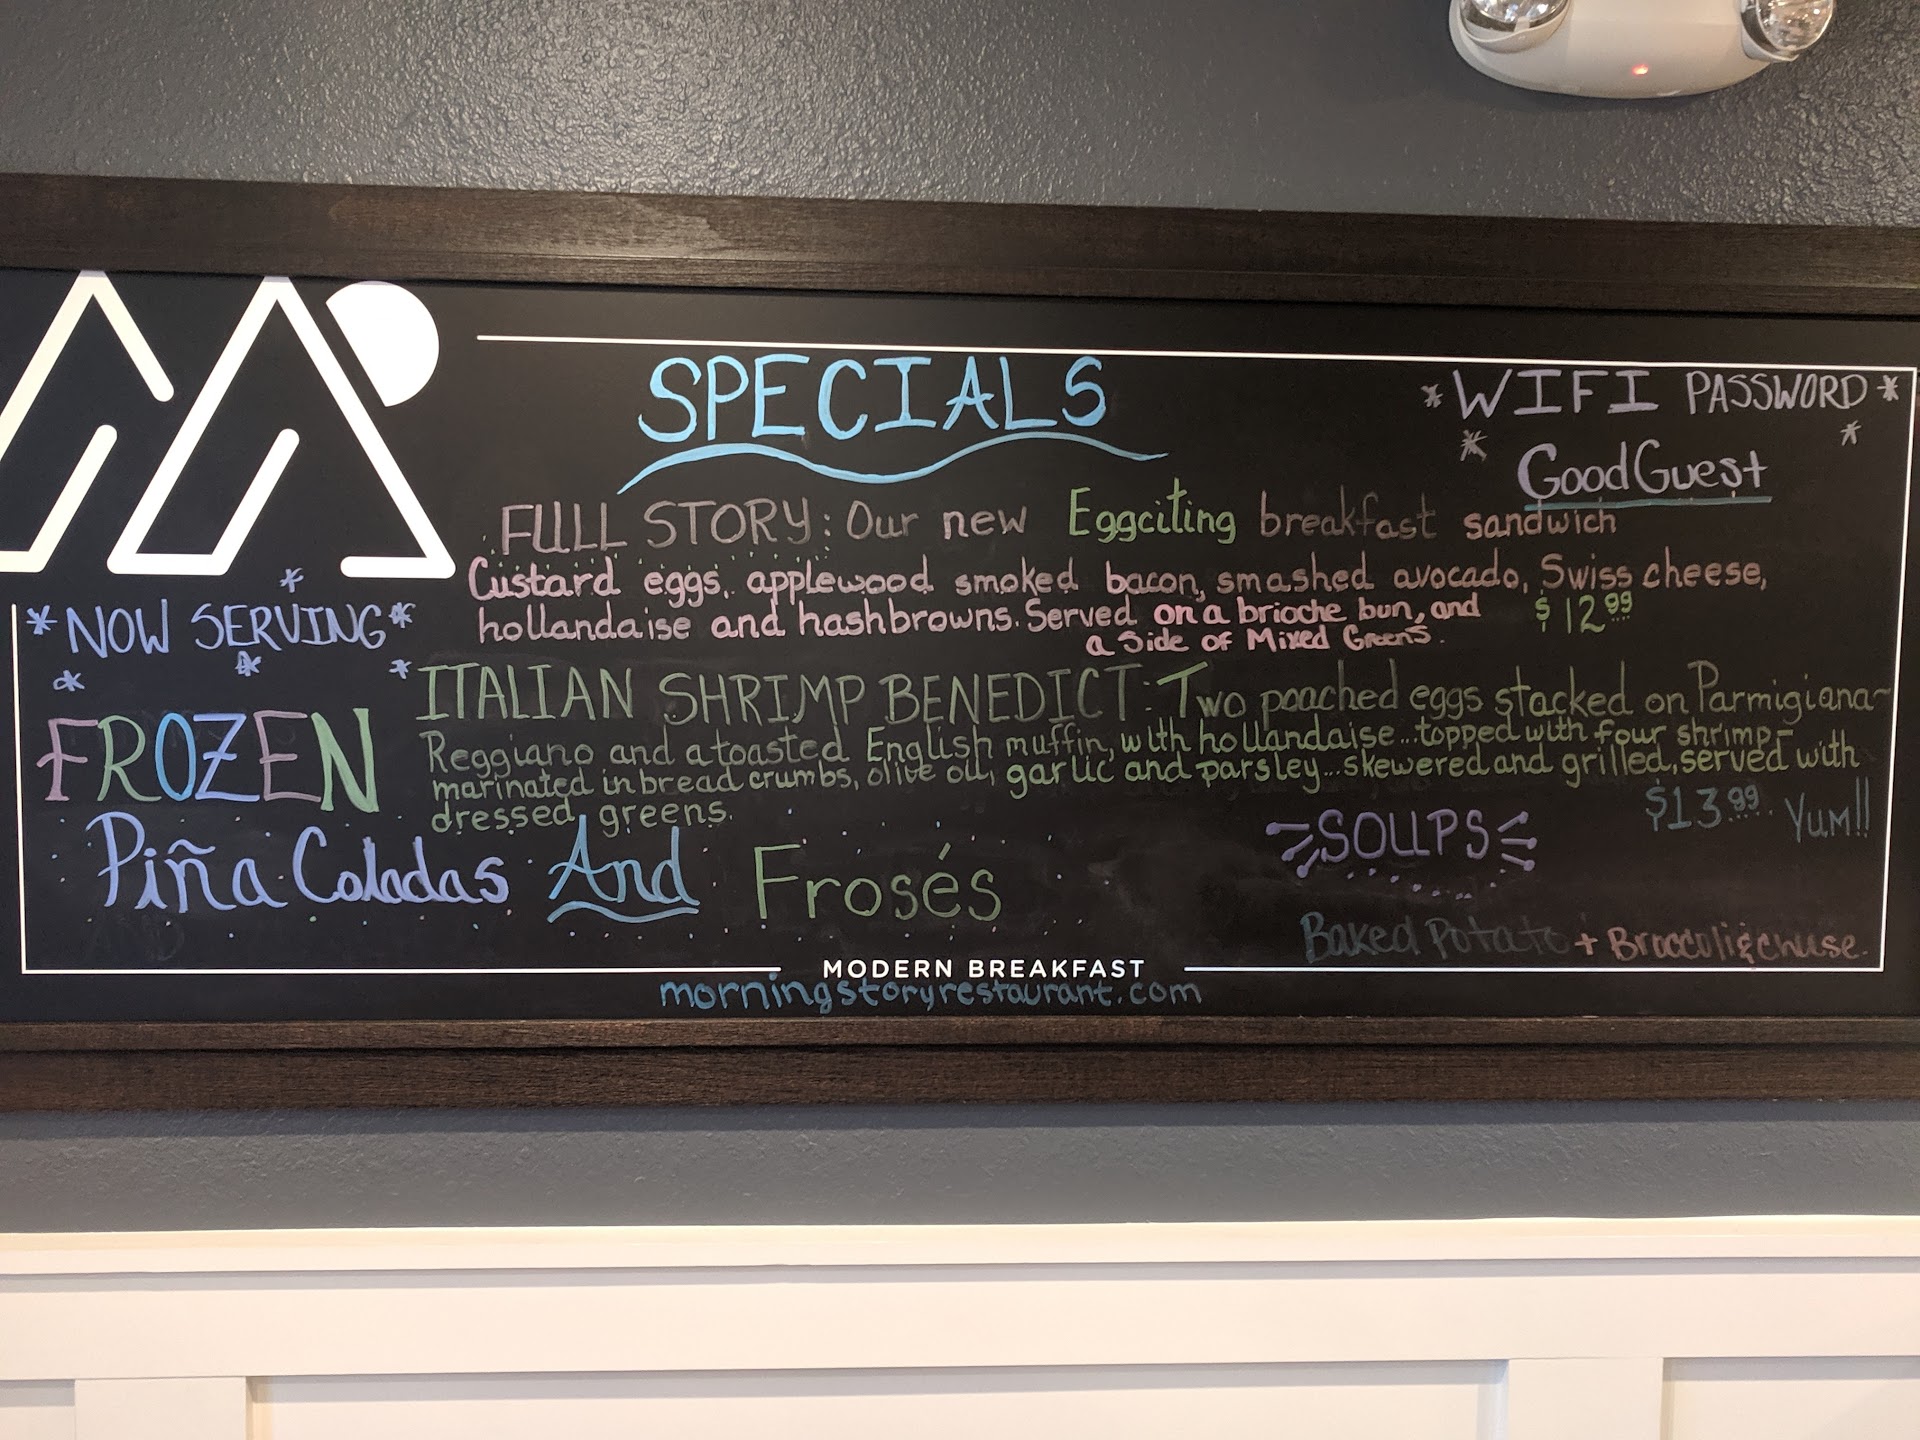 SPECIALS
* WIFI PASSWORD *
GoodGuest
FULL STORY: Our new Eggciting breakfast sandwich
Custard eggs, applewood smoked bacon, smashed avocado, Swiss cheese,
hollandaise and hashbrowns. Served on a brioche bun, and
a Side of Mixed Greens.
$12.99
*NOW SERVING*
FROZEN
Piña Coladas And Frosés
ITALIAN SHRIMP BENEDICT: Two poached eggs stacked on Parmigiana-
Reggiano and a toasted English muffin, with hollandaise...topped with four shrimp-
marinated in bread crumbs, olive oil, garlic and parsley...skewered and grilled, served with
dressed greens.
$13.99 Yum!!
SOUPS
Baked Potato + Broccoli & Chuse.
MODERN BREAKFAST
morningstoryrestaurant.com